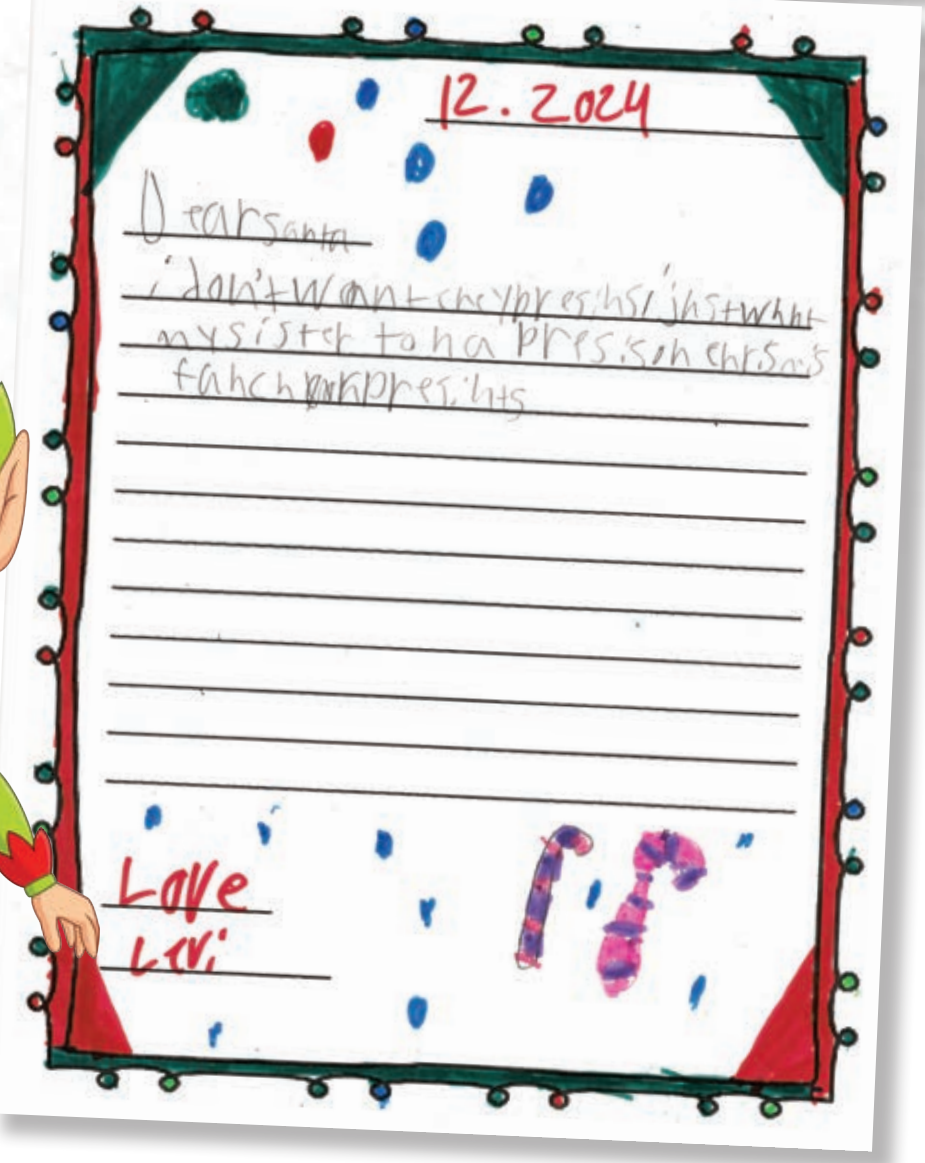 12.2024
Dear santa
i don't want eneypresihs i jhstwhnt
my sister to ha a pres.s oh chrsmis
fahch presihts
Love
Levi